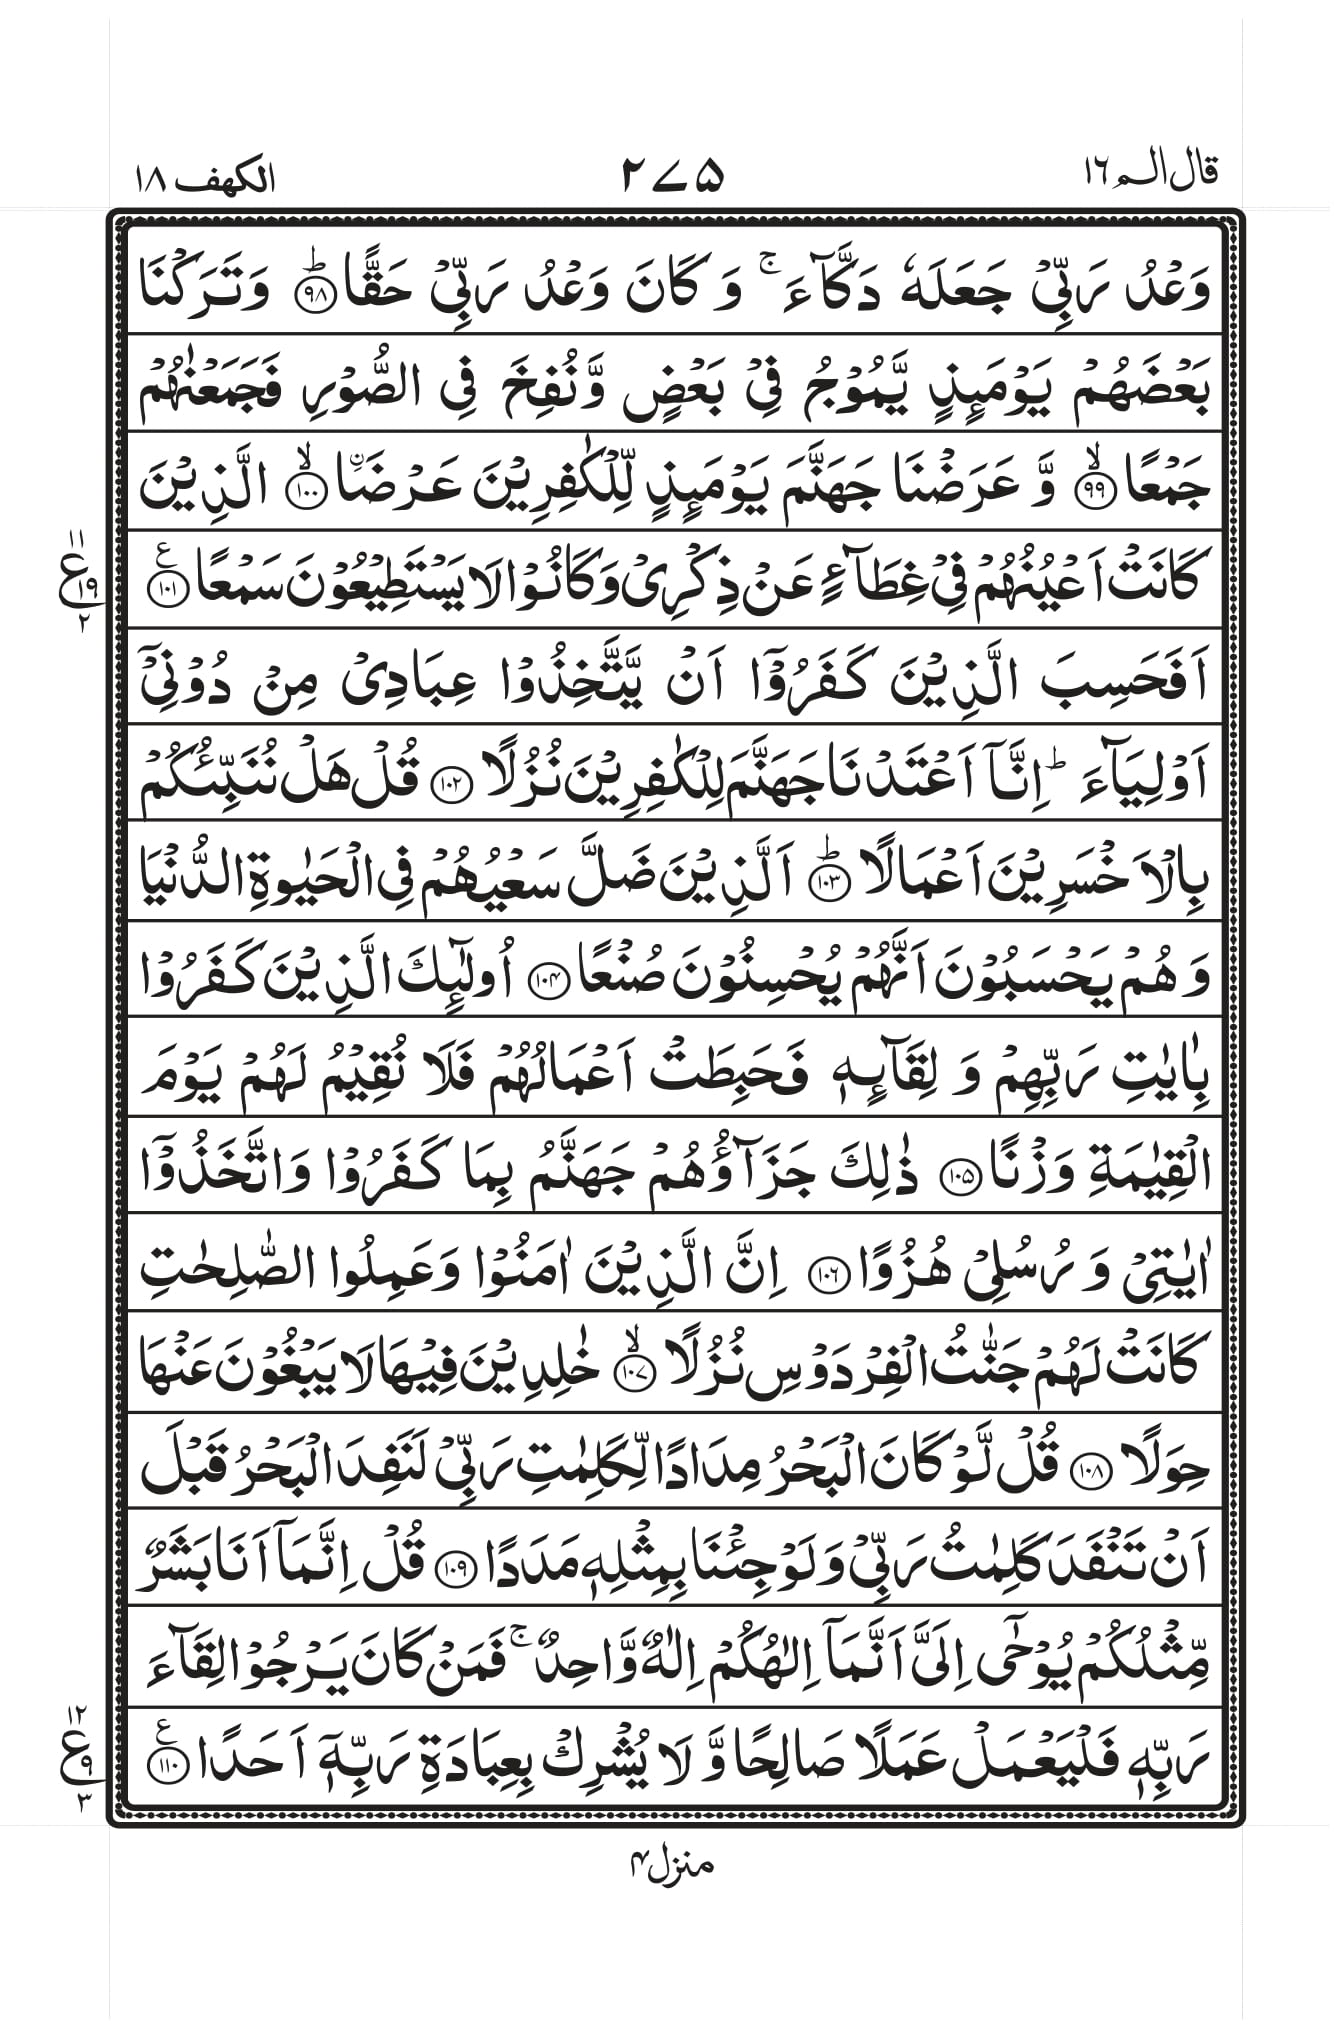 قال الم ١٦
٢٧٥
الكهف ١٨
وَعْدُ رَبِّیْ جَعَلَهٗ دَكَّآءَ ۚ وَ كَانَ وَعْدُ رَبِّیْ حَقًّا ؕ﴿۹۸﴾ وَتَرَكْنَا
بَعْضَهُمْ یَوْمَىِٕذٍ یَّمُوْجُ فِیْ بَعْضٍ وَّنُفِخَ فِی الصُّوْرِ فَجَمَعْنٰهُمْ
جَمْعًا ۙ﴿۹۹﴾ وَّ عَرَضْنَا جَهَنَّمَ یَوْمَىِٕذٍ لِّلْكٰفِرِیْنَ عَرْضَا ۙ﴿۱۰۰﴾ ۨالَّذِیْنَ
كَانَتْ اَعْیُنُهُمْ فِیْ غِطَآءٍ عَنْ ذِكْرِیْ وَكَانُوْا لَا یَسْتَطِیْعُوْنَ سَمْعًا ﴿۱۰۱﴾ ع
١١
ع ١٩
٢
اَفَحَسِبَ الَّذِیْنَ كَفَرُوْۤا اَنْ یَّتَّخِذُوْا عِبَادِیْ مِنْ دُوْنِیْۤ
اَوْلِیَآءَ ؕ اِنَّاۤ اَعْتَدْنَا جَهَنَّمَ لِلْكٰفِرِیْنَ نُزُلًا ﴿۱۰۲﴾ قُلْ هَلْ نُنَبِّئُكُمْ
بِالْاَخْسَرِیْنَ اَعْمَالًا ؕ﴿۱۰۳﴾ اَلَّذِیْنَ ضَلَّ سَعْیُهُمْ فِی الْحَیٰوةِ الدُّنْیَا
وَ هُمْ یَحْسَبُوْنَ اَنَّهُمْ یُحْسِنُوْنَ صُنْعًا ﴿۱۰۴﴾ اُولٰٓىِٕكَ الَّذِیْنَ كَفَرُوْا
بِاٰیٰتِ رَبِّهِمْ وَ لِقَآىِٕهٖ فَحَبِطَتْ اَعْمَالُهُمْ فَلَا نُقِیْمُ لَهُمْ یَوْمَ
الْقِیٰمَةِ وَزْنًا ﴿۱۰۵﴾ ذٰلِكَ جَزَآؤُهُمْ جَهَنَّمُ بِمَا كَفَرُوْا وَاتَّخَذُوْۤا
اٰیٰتِیْ وَ رُسُلِیْ هُزُوًا ﴿۱۰۶﴾ اِنَّ الَّذِیْنَ اٰمَنُوْا وَعَمِلُوا الصّٰلِحٰتِ
كَانَتْ لَهُمْ جَنّٰتُ الْفِرْدَوْسِ نُزُلًا ۙ﴿۱۰۷﴾ خٰلِدِیْنَ فِیْهَا لَا یَبْغُوْنَ عَنْهَا
حِوَلًا ﴿۱۰۸﴾ قُلْ لَّوْ كَانَ الْبَحْرُ مِدَادًا لِّكَلِمٰتِ رَبِّیْ لَنَفِدَ الْبَحْرُ قَبْلَ
اَنْ تَنْفَدَ كَلِمٰتُ رَبِّیْ وَلَوْ جِئْنَا بِمِثْلِهٖ مَدَدًا ﴿۱۰۹﴾ قُلْ اِنَّمَاۤ اَنَا بَشَرٌ
مِّثْلُكُمْ یُوْحٰۤی اِلَیَّ اَنَّمَاۤ اِلٰهُكُمْ اِلٰهٌ وَّاحِدٌ ۚ فَمَنْ كَانَ یَرْجُوْا لِقَآءَ
رَبِّهٖ فَلْیَعْمَلْ عَمَلًا صَالِحًا وَّ لَا یُشْرِكْ بِعِبَادَةِ رَبِّهٖۤ اَحَدًا ﴿۱۱۰﴾ ع
١٢
ع ٩
٣
منزل ۴